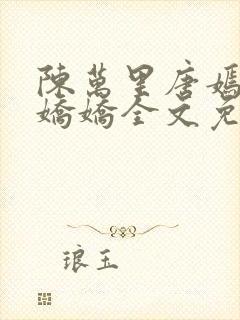 陳萬里唐嫣
嬌嬌全文免
琅玉